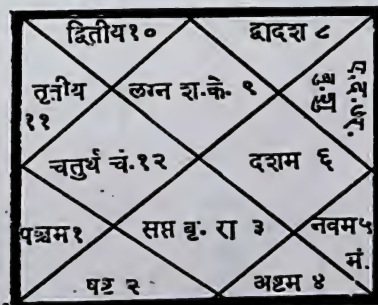 द्वितीय१०
द्वादश ८
तृतीय
११
लग्न श.के. ९
चतुर्थ चं.१२
दशम ६
पञ्चम१
सप्त बृ. रा ३
नवम५
मं.
षष्ट २
अष्टम ४